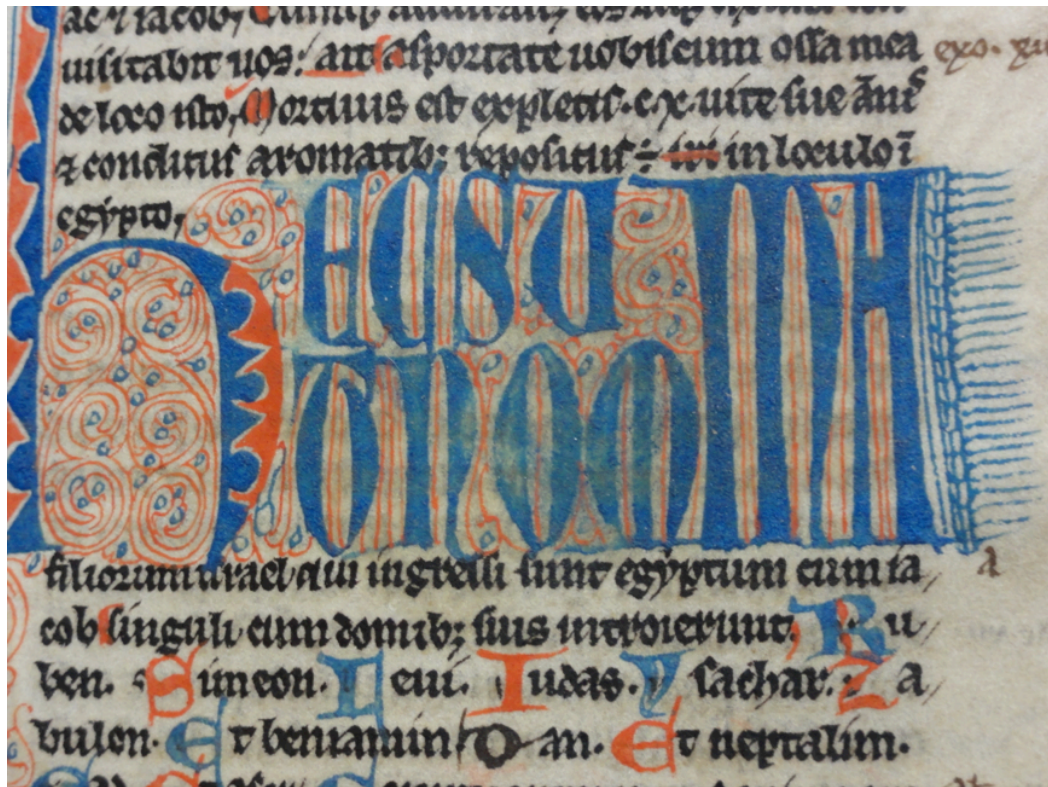 ac ⁊ iacob,
uisitabit uos: asportate uobiscum ossa mea exo.
de loco isto, Mortuus est expletis .c.x. uite sue
⁊ conditus aromatib; repositus ÷ in loculo ī
egypto,
HEC SU
filiorum israel qui ingressi sunt egyptum cum ia, a
cob singuli cum domib; suis introierunt, Ru,
ben. Simeon. Leui. Iudas. ysachar. Za,
bulon. Et beniamin, Dan. Et neptalim.